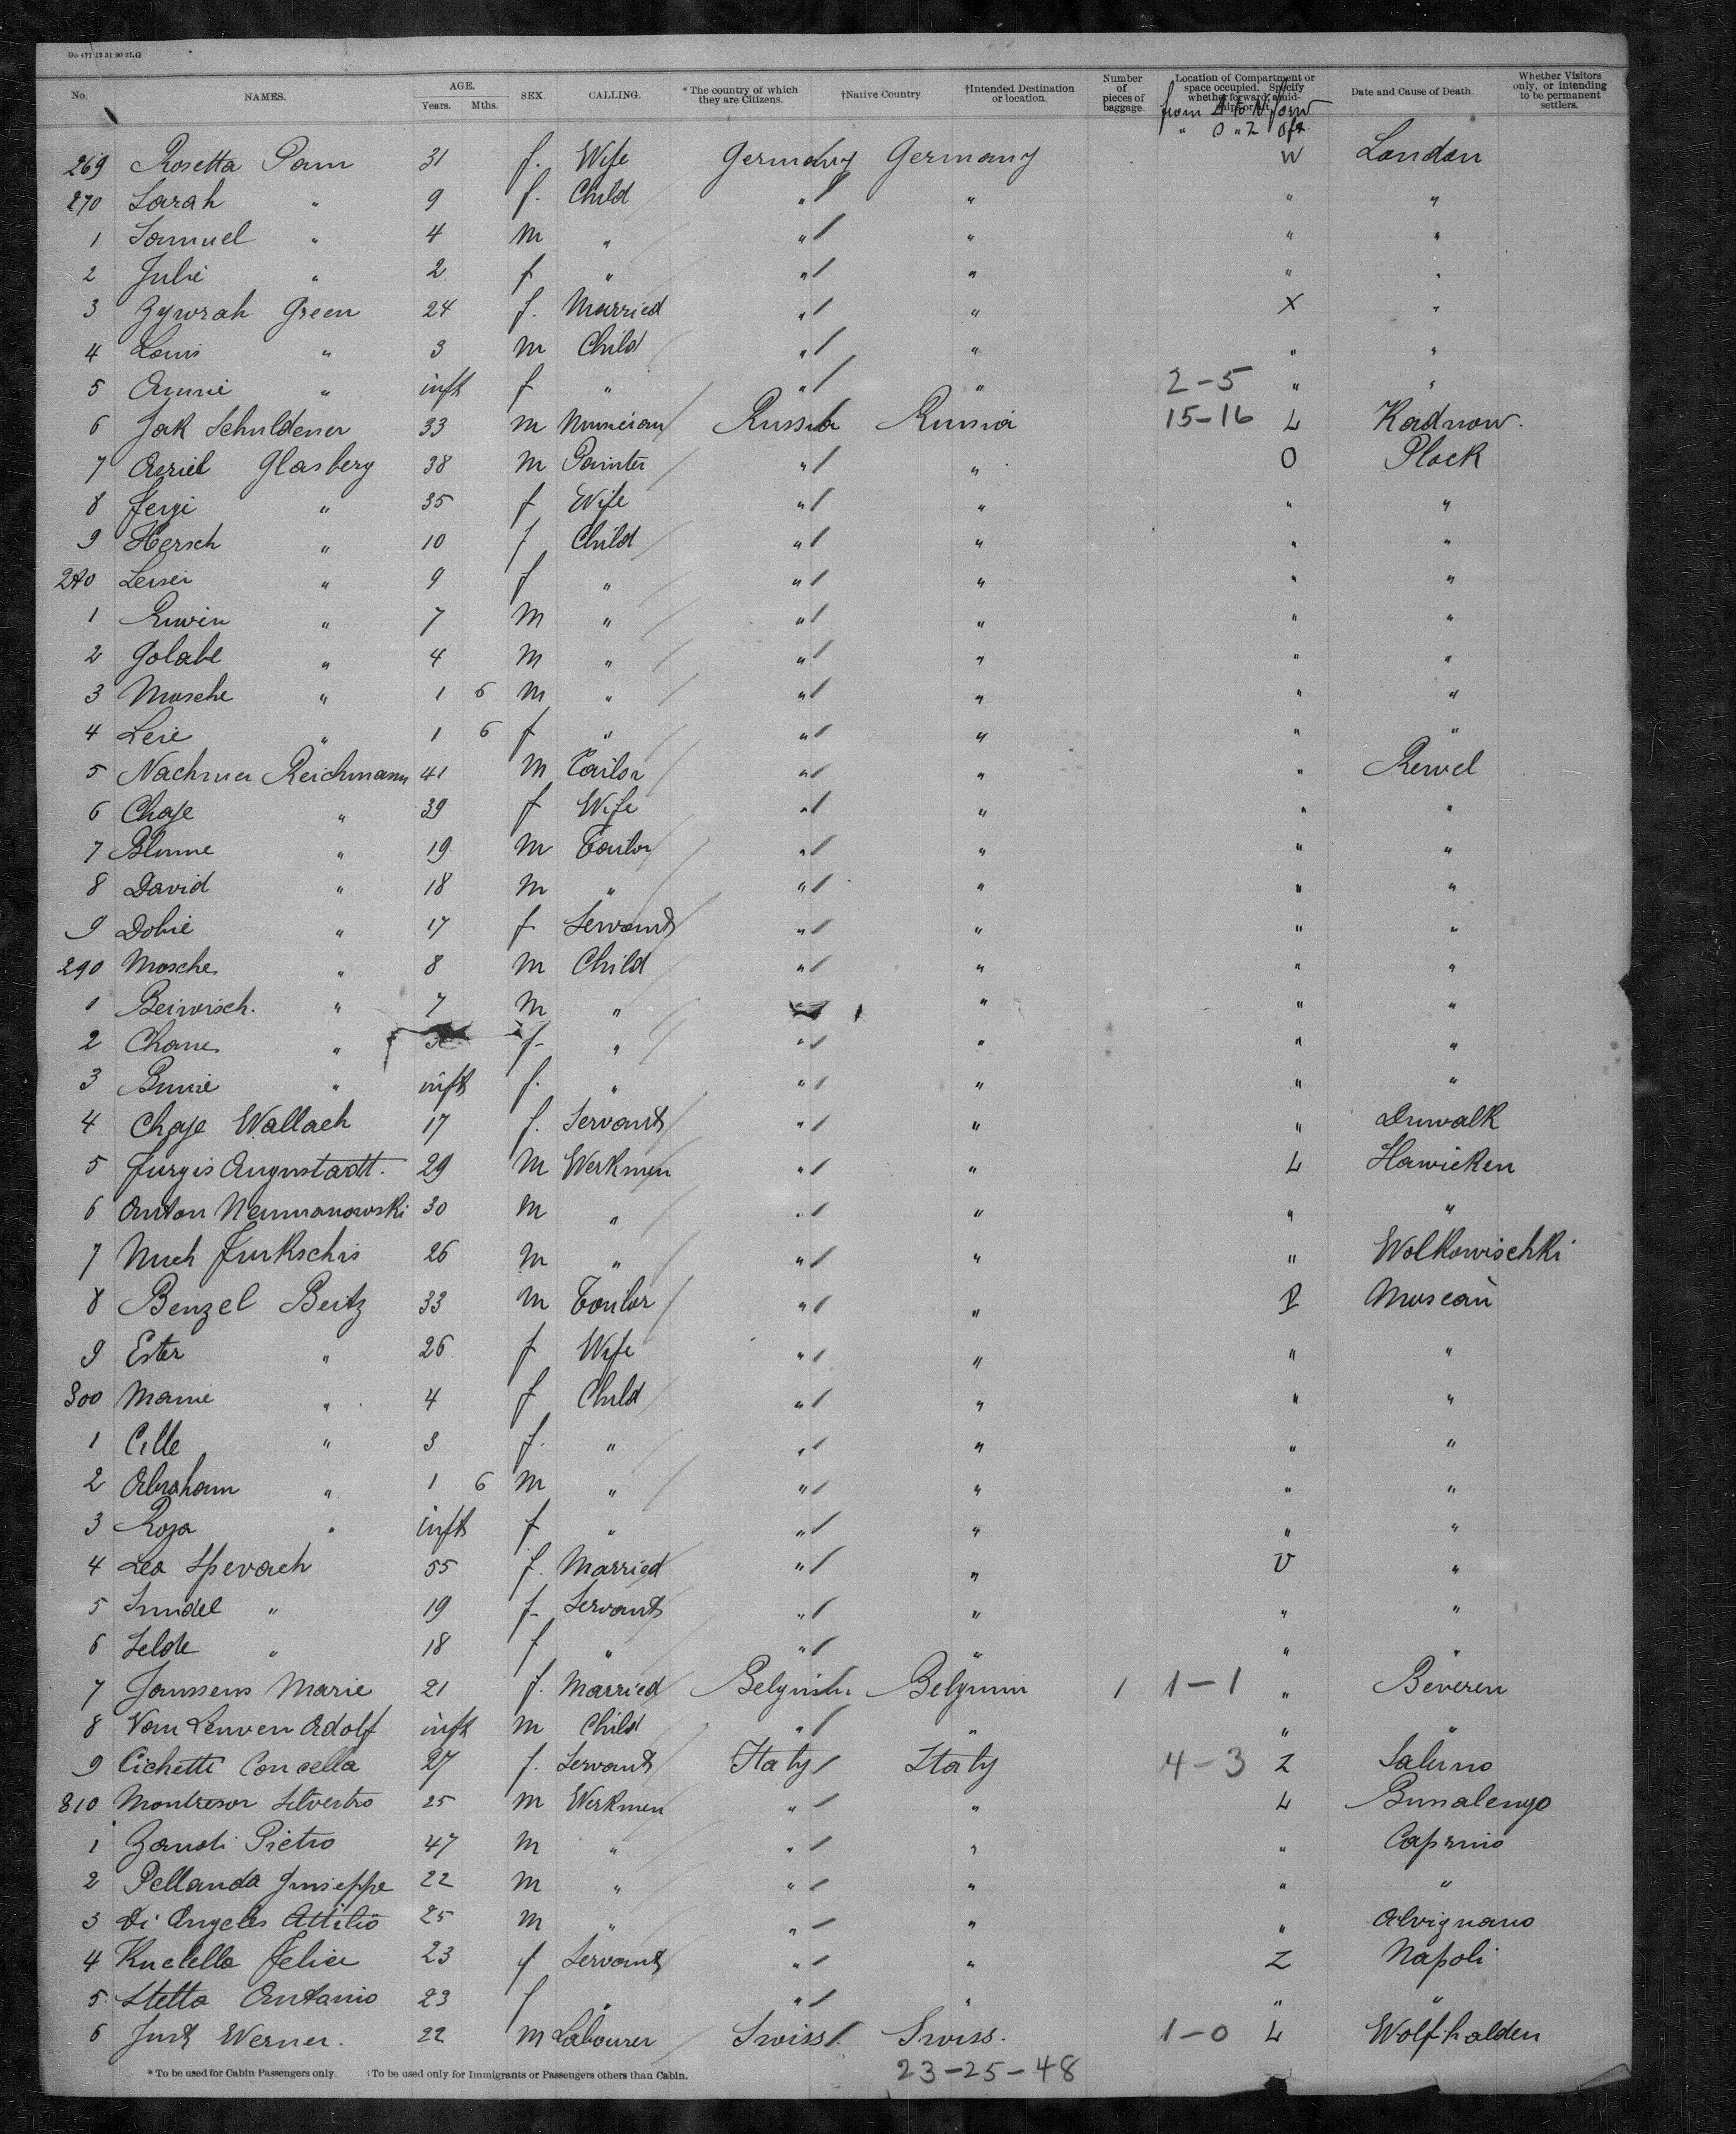 Do 477 12 31 90 2LG
No. NAMES. AGE. Years. Mths. SEX. CALLING. *The country of which they are Citizens. †Native Country †Intended Destination or location. Number of pieces of baggage. Location of Compartment or space occupied. Specify whether forward, amid-ship or aft. Date and Cause of Death Whether Visitors only, or intending to be permanent settlers.
from A to N forw
" O " Z aft
269 Rosetta Pam 31 f. Wife Germany Germany W London
270 Sarah " 9 f. Child " " " "
1 Samuel " 4 m " " " " "
2 Julie " 2 f " " " " "
3 Zywrah Green 24 f. Married " " X "
4 Louis " 3 m Child " " " "
5 Annie " inft f " " " 2-5 " "
6 Jak Schuldener 33 m Musician Russia Russia 15-16 L Kadnow.
7 Asriel Glasberg 38 m Painter " " O Plock
8 Feygi " 35 f Wife " " " "
9 Hersch " 10 f Child " " " "
280 Leiser " 9 f " " " " "
1 Ruwin " 7 m " " " " "
2 Golabe " 4 m " " " " "
3 Mosche " 1 6 m " " " " "
4 Leie " 1 6 f " " " " "
5 Nachmer Reichmann 41 m Tailor " " " Rewel
6 Chaje " 39 f Wife " " " "
7 Blume " 19 m Tailor " " " "
8 David " 18 m " " " " "
9 Dobie " 17 f Servant " " " "
290 Mosche " 8 m Child " " " "
1 Beirisch. " 7 m " " " "
2 Chane " 3 f " " " " "
3 Bunie " inft f. " " " " "
4 Chaje Wallach 17 f. Servant " " "
5 Jurgis Augustadt. 29 m Werkmen " " L Hawicken
6 Anton Neumanowski 30 m " " " " "
7 Much Jurkschis 26 m " " " " Wolkowischki
8 Benzel Beitz 33 m Tailor " " P Moscau
9 Ester " 26 f Wife " " " "
300 Manie " 4 f Child " " " "
1 Cille " 3 f. " " " " "
2 Abraham " 1 6 m " " " " "
3 Roza " inft f " " " " "
4 Lea Spevach 55 f. Married " " U "
5 Sundel " 19 f Servant " " " "
6 Selde " 18 f " " " " "
7 Janssens Marie 21 f. Married Belgium Belgium 1 1-1 " Beveren
8 Van Leuven Adolf inft m Child " " " "
9 Cichetti Concella 27 f. Servant Italy Italy 4-3 Z Salerno
310 Montresor Silvestro 25 m Werkmen " " L Bussalengo
1 Zanoli Pietro 47 m " " " " Caprino
2 Pellanda Giuseppe 22 m " " " " "
3 Di Angelis Attilio 25 m " " " " Alvignano
4 Felice 23 f Servant " " Z Napoli
5 Stella Antonio 23 f " " " " "
6 Just Werner. 22 m Labourer Swiss. Swiss. 1-0 L Wolfhalden
23-25-48
*To be used for Cabin Passengers only. †To be used only for Immigrants or Passengers others than Cabin.